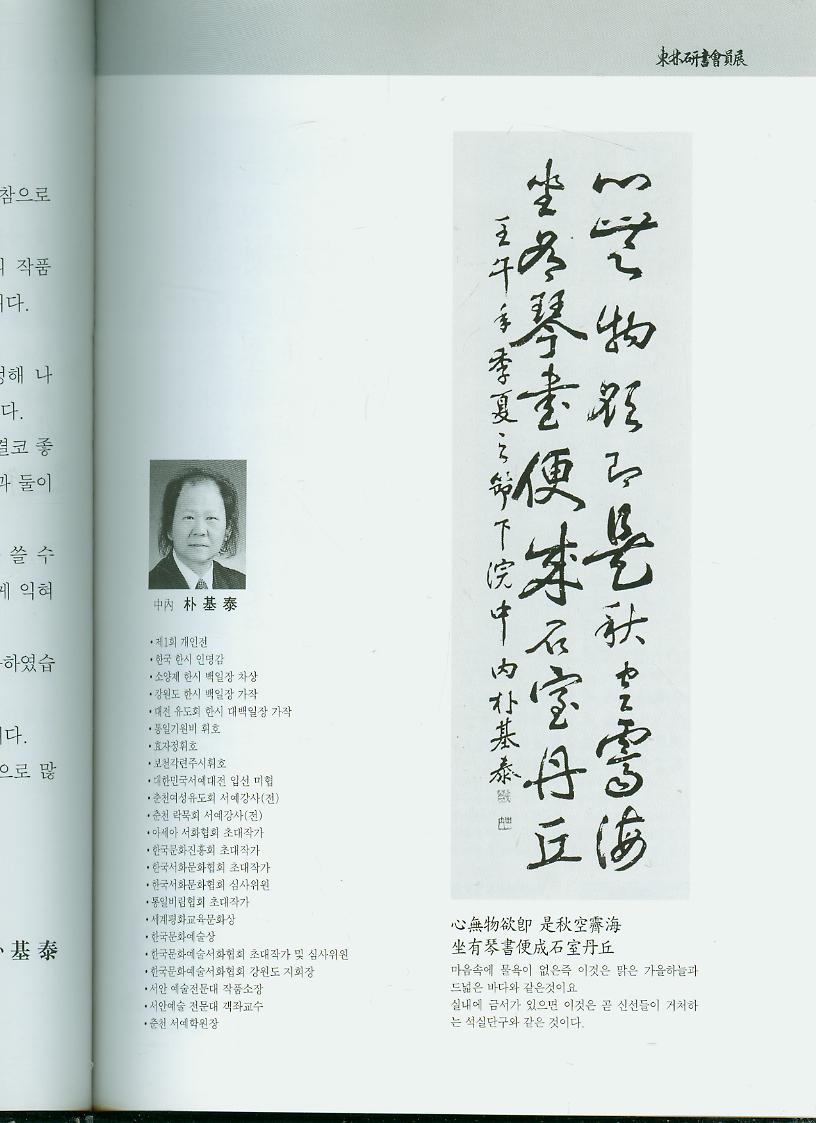 참으로
작품
다.
해 나
다.
결코 좋
과 둘이
쓸 수
게 익혀
하였습
다.
으로 많
基泰
東林硏書會員展
心無物欲即是秋空霽海
坐有琴書便成石室丹丘
壬午年季夏之節下浣中內朴基泰
中內 朴基泰
•제1회 개인전
•한국 한시 인명감
•소양제 한시 백일장 차상
•강원도 한시 백일장 가작
•대전 유도회 한시 대백일장 가작
•통일기원비 휘호
•효자정휘호
•보천각련주시휘호
•대한민국서예대전 입선 미협
•춘천여성유도회 서예강사(전)
•춘천 락묵회 서예강사(전)
•아세아 서화협회 초대작가
•한국문화진흥회 초대작가
•한국서화문화협회 초대작가
•한국서화문화협회 심사위원
•통일비림협회 초대작가
•세계평화교육문화상
•한국문화예술상
•한국문화예술서화협회 초대작가 및 심사위원
•한국문화예술서화협회 강원도 지회장
•서안 예술전문대 작품소장
•서안예술 전문대 객좌교수
•춘천 서예학원장
心無物欲卽 是秋空霽海
坐有琴書便成石室丹丘
마음속에 물욕이 없은즉 이것은 맑은 가을하늘과
드넓은 바다와 같은것이요
실내에 금서가 있으면 이것은 곧 신선들이 거처하
는 석실단구와 같은 것이다.